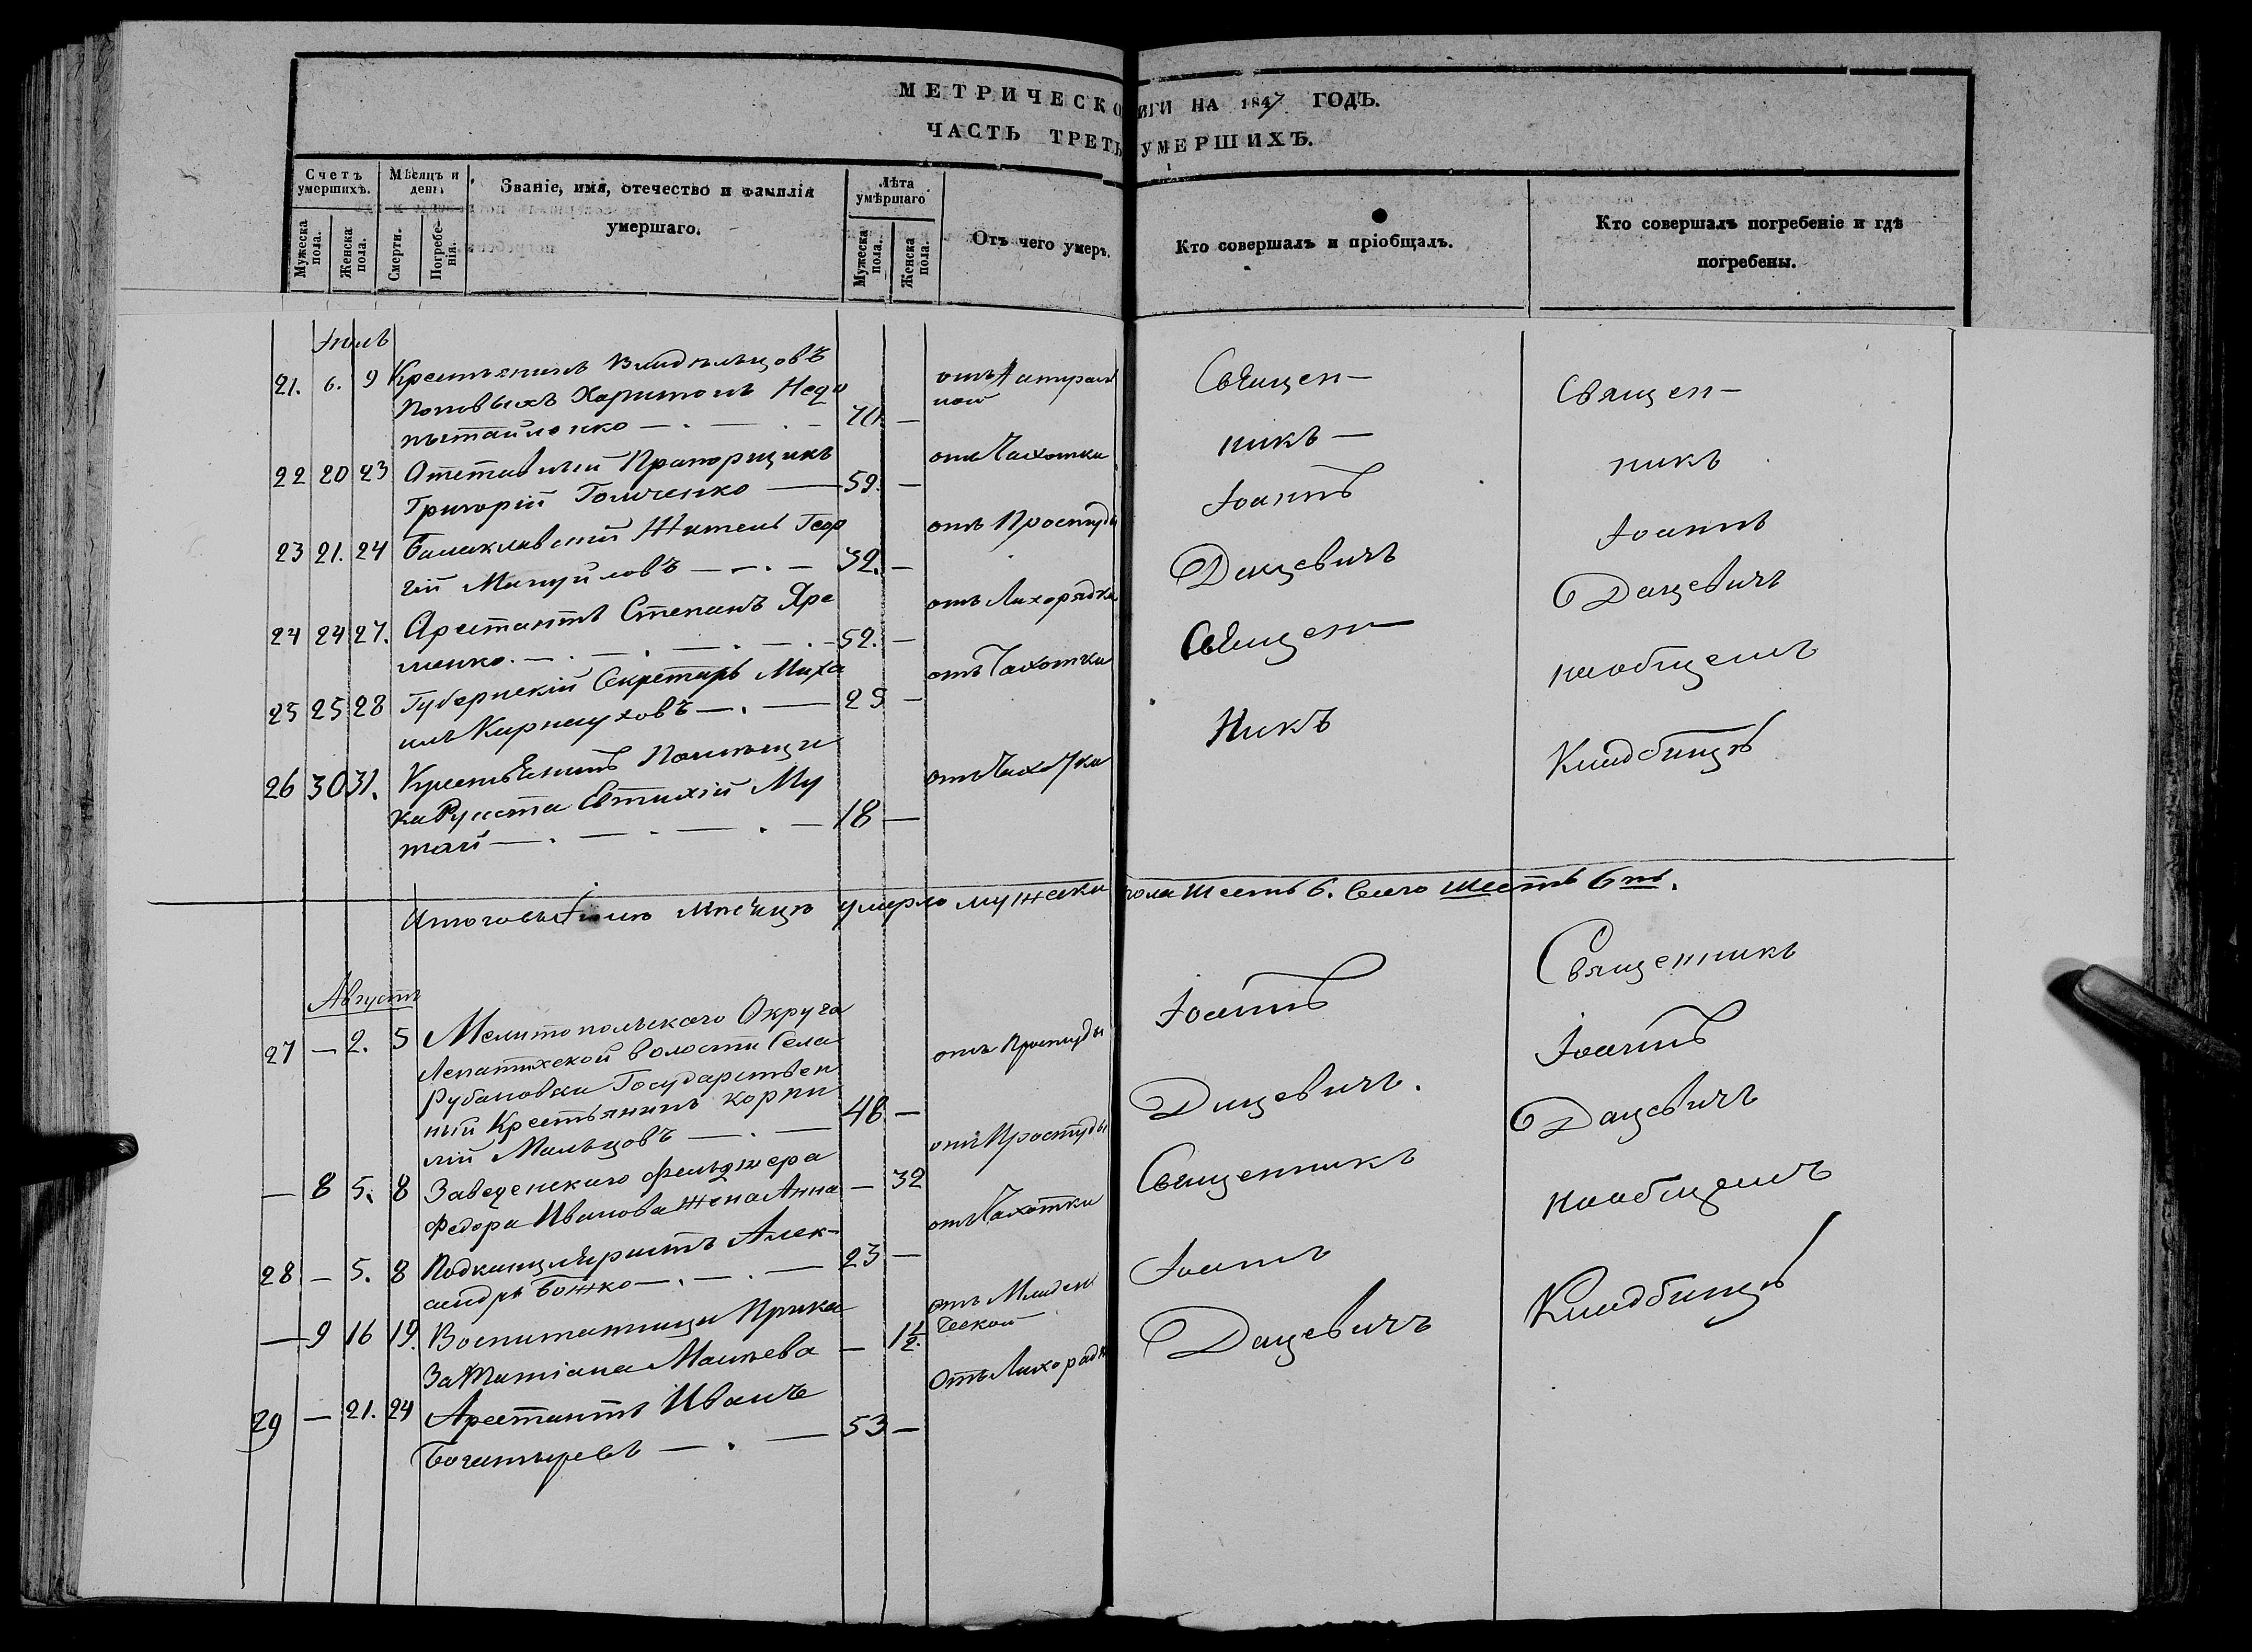 МЕТРИЧЕСКО ИГИ НА 1847 ГОДЪ.
ЧАСТЬ ТРЕТЬ УМЕРШИХЪ.
Счетъ умершихъ.
Мужеска пола.
Женска пола.
Мѣсяцъ и день
Смерти.
Погребенія.
Званіе, имя, отечество и фамилія
умершаго.
Лѣта умершаго
Мужеска пола.
Женска пола.
Отъ чего умеръ.
Кто совершалъ и пріобщалъ.
Кто совершалъ погребеніе и гдѣ
погребены.
21. 6. 9 Крестьянинъ
Харитонъ Недо
пытайленко — 70 —
22 20 23 Отставный Прапорщикъ отъ Чахотки
Григорій — 59. —
23 21. 24 Балаклавскій Житель Геор отъ Простуды
гій Мануйловъ — 32. —
24 24 27. Арестантъ Степанъ Яре отъ Лихорадки
менко. — 52. —
25 25 28 Губернскій Секретарь Миха отъ Чахотки
илъ Карнауховъ — —
26 30 31. Крестьянинъ Помѣщи отъ Чахотки
ка Евтихій Му
тай — 18 —
Священ—
никъ —
Іоаннъ
Дацевичъ
Священ—
никъ
Священ—
никъ
Іоаннъ
Дацевичъ
на общемъ
Кладбищѣ
Итого въ Іюлѣ Мѣсяцѣ умерло мужеска пола шесть 6. Всего шесть 6ть.
Августъ
27 — 2. 5 Мелитопольскаго Округа отъ Простуды
Лепатихской волости Села
Рубановки Государствен
ный Крестьянинъ Корни
лій Мальцовъ — 48 —
— 8 5. 8 Заведенскаго фельдшера отъ Простуды
Федора Иванова жена Анна — 32
28 — 5. 8 Подканцеляристъ Алек- отъ Чахотки
андръ Божко — 23 —
— 9 16 19. Воспитанница Прика отъ Младен
ческой
за Татіана — 1 1/2.
29 — 21. 24 Арестантъ Иванъ Отъ Лихорадк
Богатыревъ — 53 —
Іоаннъ
Дацевичъ.
Священникъ
Іоаннъ
Дацевичъ
Священникъ
Іоаннъ
Дацевичъ
на общемъ
Кладбищѣ